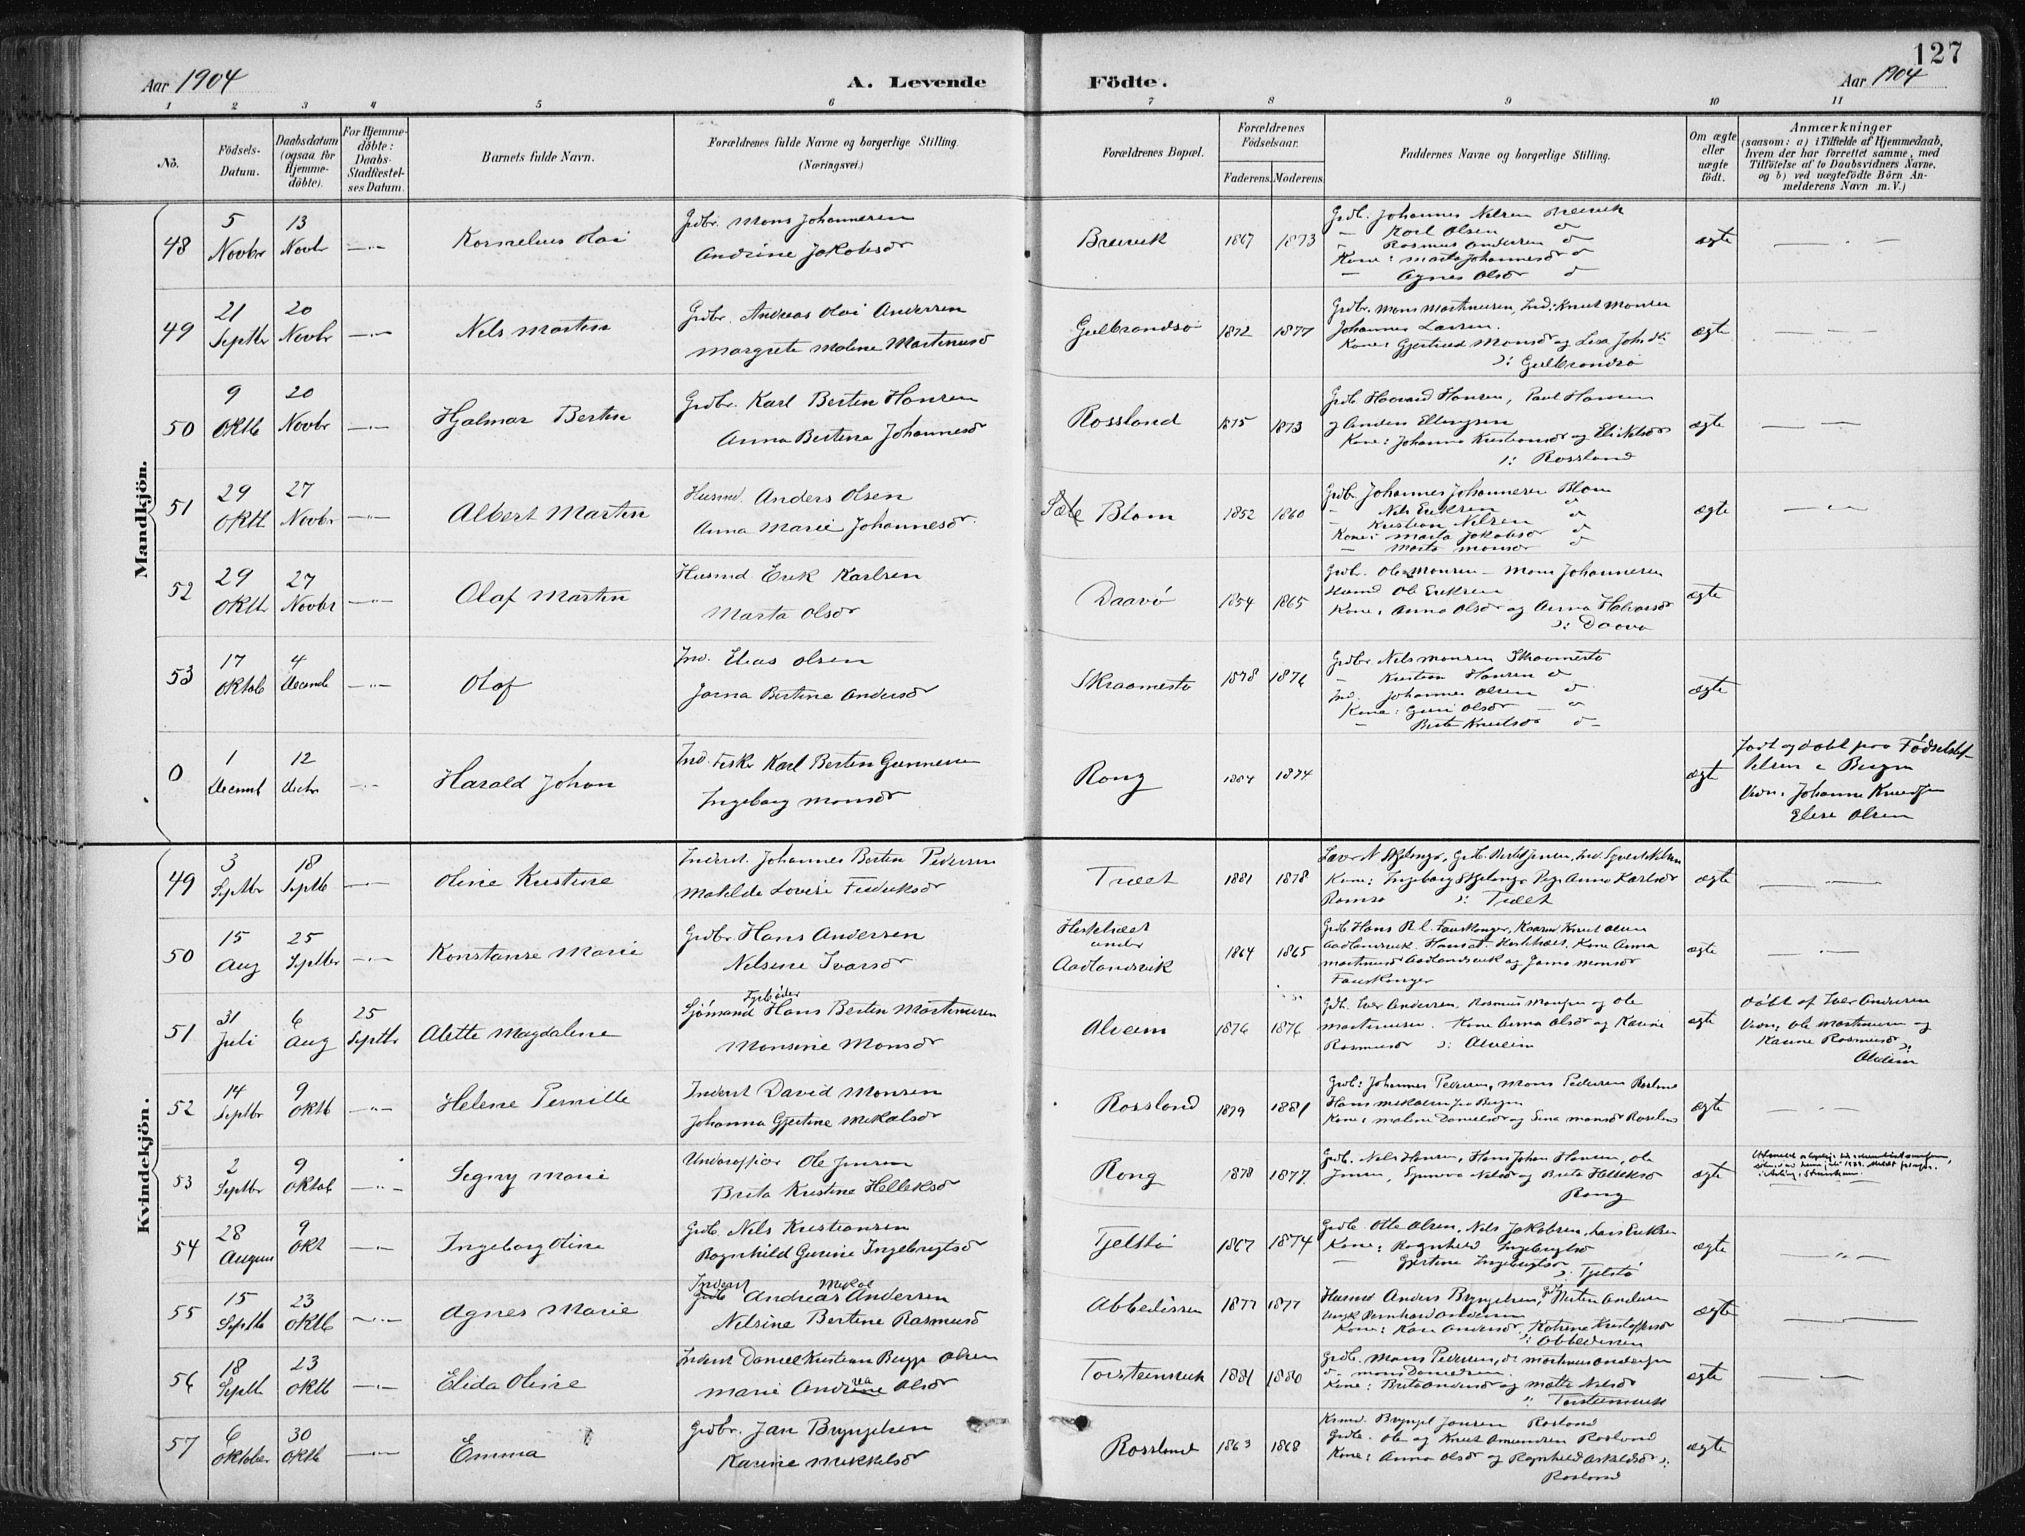 127
Aar 1904
A. Levende Födte.
Aar 1904
1 2 3 4 5 6 7 8 9 10 11
No.
Födsels-Datum.
Daabsdatum (ogsaa for Hjemme-döbte).
For Hjemme-döbte: Daabs-Stadfæstel-ses Datum.
Barnets fulde Navn.
Forældrenes fulde Navne og borgerlige Stilling. (Næringsvei.)
Forældrenes Bopæl.
Forældrenes Födselsaar.
Faderens. Moderens.
Faddernes Navne og borgerlige Stilling.
Om ægte eller uægte födt.
Anmærkninger
(saasom: a) i Tilfælde af Hjemmedaab,
hvem der har forrettet samme, med
Tilföielse af to Daabsvidners Navne,
og b) ved uægtefödte Börn An-
melderens Navn m. V.)
Mandkjön.
48 5 Novbr 13 Novbr Kornelius Olai
Grdbr. Mons Johannesen
Andrine Jakobsdr
Breivik 1867 1873
Grdb. Johannes Nilsen Breivik
" Karl Olsen d
" Rasmus Andersen d
Kone: Marta Johannesdr d
" Agnes Olsdr d
ægte
49 21 Septbr 20 Novbr Nils Martin
Grdbr. Andreas Olai Andersen
Margrete Malene Martinusd
Gulbrandsö 1872 1877
Grdbr. Mons Martinusen, Ind: Knut Monsen
Johannes Larsen.
Kone: Gjertrud Monsdr og Lisa Johsdr
ɔ: Gulbrandsö
ægte
50 9 Oktb 20 Novbr Hjalmar Bertin
Grdbr. Karl Bertin Hansen
Anna Bertina Johannesdr
Rossland 1875 1873
Grdb Haavard Hansen, Paul Hansen
og Anders Ellingsen
Kone: Johanna Kristiansdr og Eli Nilsdr
ɔ: Rossland
ægte
51 29 Oktb 27 Novbr Albert Martin
Husmd. Anders Olsen
Anna Marie Johannesdr
Blom 1852 1860
Grdbr. Johannes Johannesen Blom
" Nils Eriksen d
" Kristian Nilsen d
Kone: Marta Jakobsdr d
" Marta Monsdr d
ægte
52 29 Oktbr 27 Novbr Olaf Martin
Husmd Erik Karlsen
Marta Olsdr
Daavö 1854 1865
Grdbr. Ole Monsen – Mons Johannesen
Husmd Ole Eriksen
Kone: Anna Olsdr og Anna Halvorsdr
ɔ: Daavö
ægte
53 17 Oktob 4 Decemb Olaf
Ind. Elias Olsen
Jorna Bertine Andersdr
Skraamestö 1878 1876
Grdbr Nils Monsen Skraamestö
" Kristian Hansen d
Ind. Johannes Olsen d
Kone: Guri Olsdr d
" Berta Knutsdr d
ægte
0 1 Decemb 12 Decbr Harald Johan
Ind. Fisker Karl Bertin Gunnesen
Ingeborg Monsdr
Rong 1884 1874
ægte
Födt og döbt paa Födselsstif-
telsen i Bergen
Vidn: Johanne Knudsen
Elise Olsen
Kvindekjön.
49 3 Septbr 18 Septb Oline Kristine
Inderst. Johannes Bertin Pedersen
Matilde Lovise Fredriksdr
Tvedt 1881 1878
ægte
50 15 Aug 25 Septbr Konstanse Marie
Grdbr. Hans Andersen
Nilsine Ivarsdr
Aadlandsvik
under
1864 1865
ægte
51 31 Juli 6 Aug 25 Septbr Alette Magdalene
Fyrböder
Sjömand Hans Bertin Martinusen
Monsine Monsdr
Alveim 1876 1876
Grdb. Iver Andersen, Rasmus Monsen og Ole
Martinusen. Kone Anna Olsdr og Karine
Rasmusdr ɔ: Alveim
ægte
Döbt af Iver Andersen
Vidn: Ole Martinusen og
Karine Rasmusdr
ɔ: Alveim
52 14 Septbr 9 Oktb Helene Pernille
Inderst David Monsen
Johanna Gjertine Mikalsdr
Rossland 1879 1881
Grdb: Johannes Pedersen, Mons Pedersen Rosland
Hans Mikalsen fra Bergen
Kone: Malene Danielsdr og Sina Monsdr Rosland
ægte
53 2 Septbr 9 Oktob Signy Marie
Underofficer Ole Jensen
Brita Kristine Helleksdr
Rong 1878 1877
Grdb. Nils Hansen, Hans Johan Hansen, Ole
Jensen, Synneva Nilsdr og Brita Helleksdr
Rong
ægte
54 28 August 9 Okt Ingeborg Oline
Grdb. Nils Kristiansen
Ragnhild Gurine Ingebrigtsdr
Tjelstö 1867 1874
Grdb. Otte Olsen, Nils Jakobsen, Lars Eriksen
Kone: Ragnhild Ingebrigtsdr
" Gjertine Ingebrigtsdr
ɔ: Tjelstö
ægte
55 15 Septb 23 Oktb Agnes Marie
Inderst Mikal
Grdb Andreas Andersen
Nilsine Bertine Rasmusd
Abbedissen 1877 1877
Husmd Anders Bryngelsen, Bertin Andersen
Ungk Bernhard Andersen
Kone: Kari Andersdr, Katrine Kristoffersdr
ɔ: Abbedissen
ægte
56 18 Septb 23 Oktb Elida Oline
Inderst Daniel Kristian Berge Olsen
Marie Andrea Olsdr
Torsteinsvik 1881 1880
Grdb. Mons Pedersen, d Martinus Andersen
d– Mons Danielsen.
Kone: Brita Andersdr og Mette Nilsdr
ɔ: Torsteinsvik
ægte
57 6 Oktober 30 Oktb Emma
Grdbr. Jan Bryngelsen
Karine Mikkelsdr
Rossland 1863 1868
Husmd. Bryngel Jansen Rosland
Grdb. Ole og Knut Amundsen Rosland
Kone: Anna Olsdr og Ragnhild Askildsdr ɔ:
Rosland
ægte